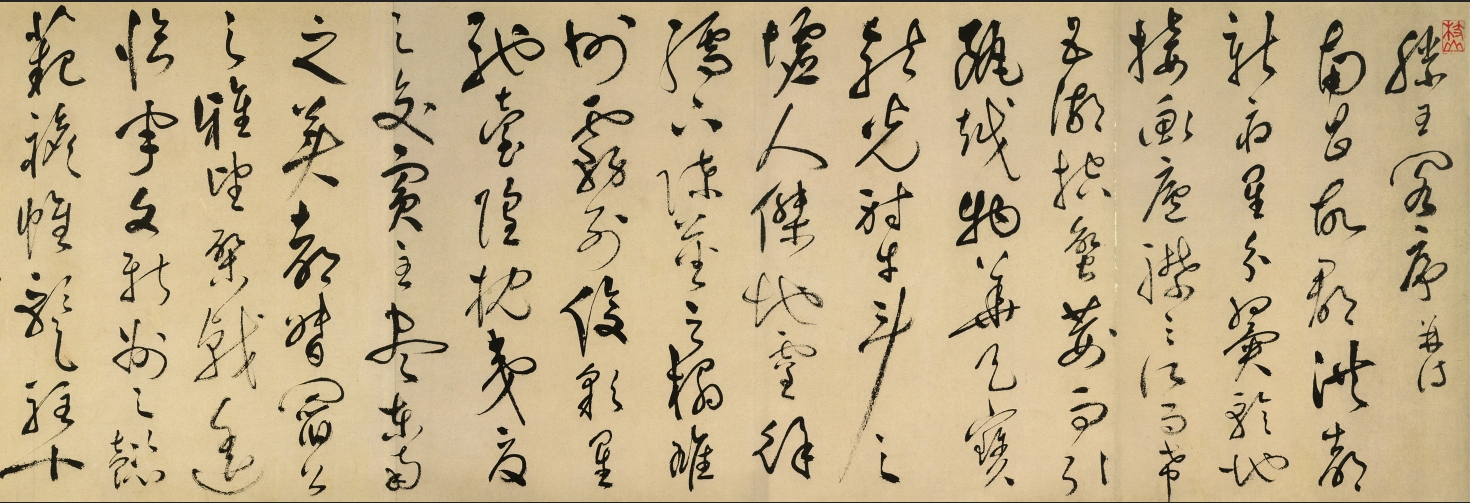 枝山
滕王閣序并詩
南昌故郡洪都
新府星分翼軫地
接衡廬襟三江而帶
五湖控蠻荆而引
甌越物華天寶
龍光射牛斗之
墟人傑地靈徐
孺下陳蕃之榻雄
州霧列俊彩星
馳臺隍枕夷夏
之交賓主盡東南
之美都督閻公
之雅望棨戟遙
臨宇文新州之懿
範襜帷暫駐十